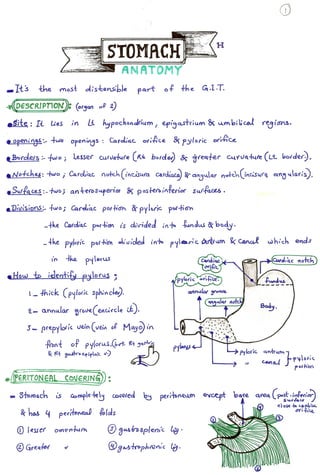 ①
STOMACH
H
ANATOMY
It's the most distensible part of the G.I.T.
DESCRIPTION: (organ of 2)
Site: It lies in Lt hypochondrium, epigastrium & umbilical regions.
openings:- two openings: Cardiac orifice & Pyloric orifice.
Borders:- two; Lesser curvature (Rt border) & greater curvature (Lt. border).
Notches: two; Cardiac notch (incisura cardiaca) & angular notch (incisura angularis).
Surfaces:- two; anterosuperior & posteroinferior surfaces.
Divisions:- two; Cardiac portion & pyloric portion
-the Cardiac portion is divided into fundus & body.
-the pyloric portion divided into pyloric antrum & Canal which ends
in the pylorus
How to identify pylorus:
1- thick (pyloric sphincter).
2- annular groove (encircle it).
3- prepyloric vein (vein of Mayo) in
front of pylorus.
Cardiac orifice
Cardiac notch
pyloric orifice
fundus
annular groove
angular notch
Body.
pylorus
pyloric antrum
" canal
pyloric portion
PERITONEAL COVERING:
- Stomach is completely covered by peritoneum except bare area (post-inferior surface close to cardiac orifice
& has 4 peritoneal folds
① lesser omentum
③ gastrosplenic lig.
② Greater "
④ gastrophrenic lig.